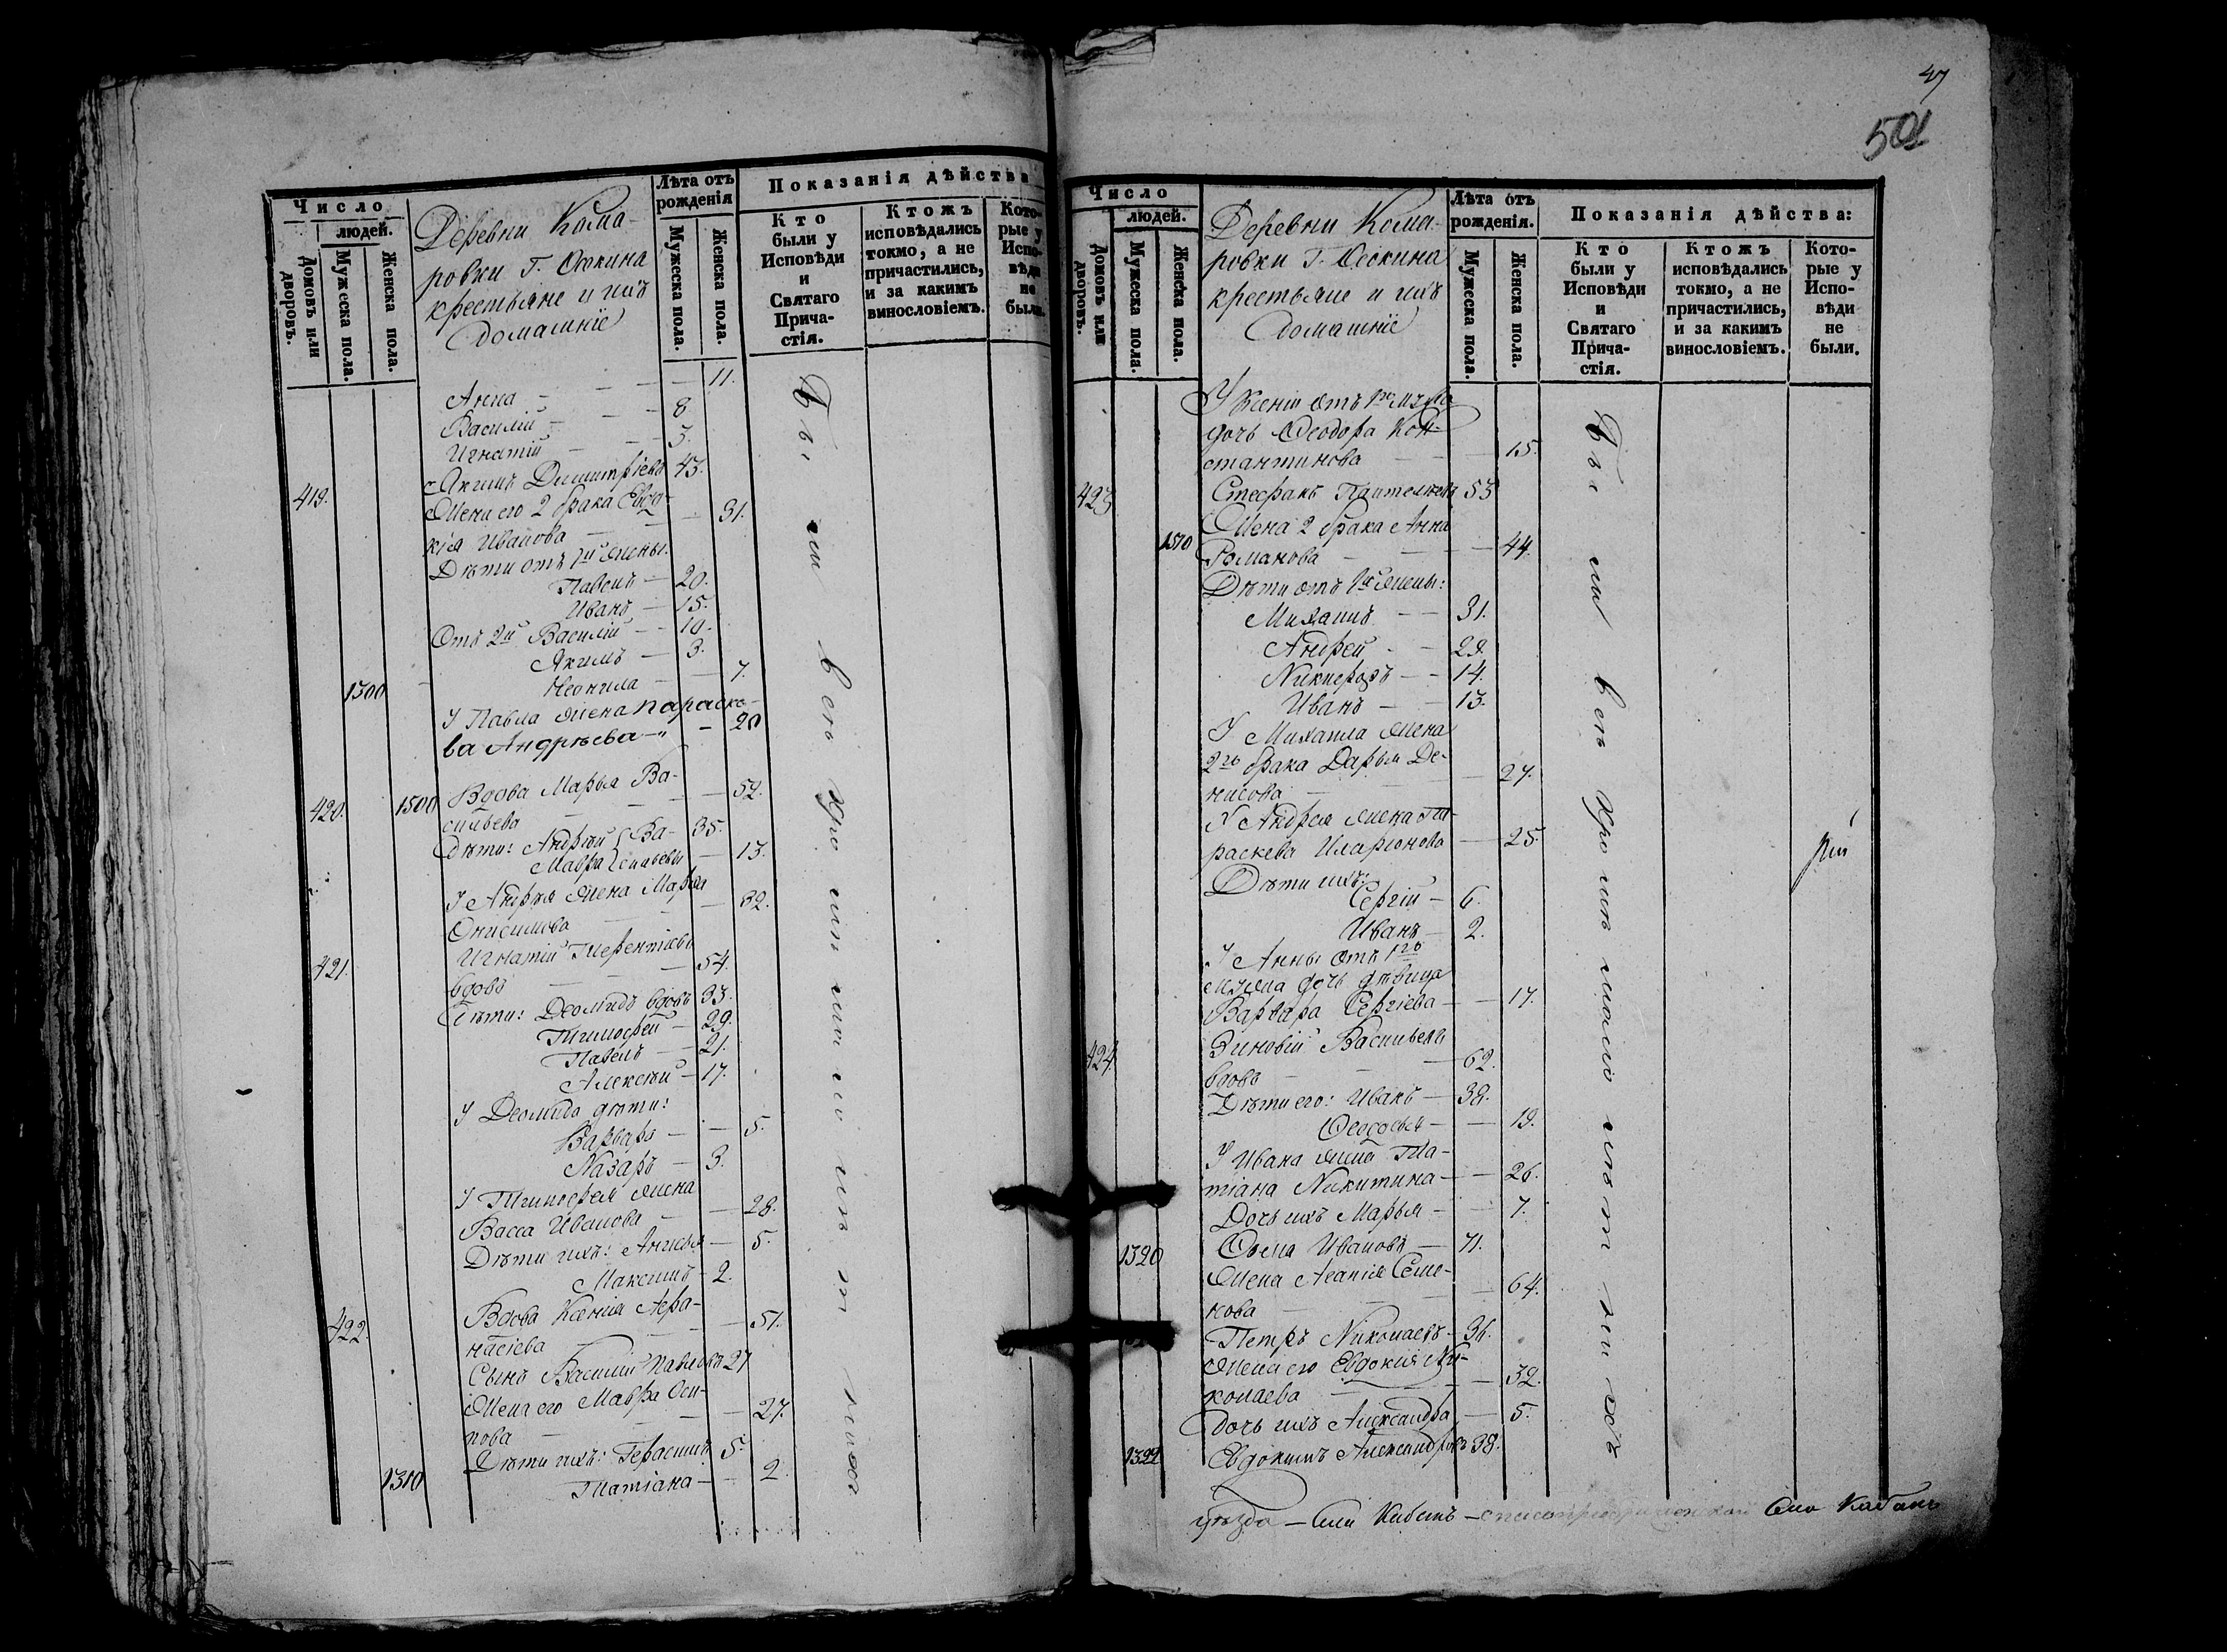 Число
людей.
Домовъ или дворовъ.
Мужеска пола.
Женска пола.
Деревни Кома-
ровки Г.
крестьяне и ихъ
домашніе
Лѣта отъ
рожденія
Мужеска пола.
Женска пола.
Показанія дѣйства
Кто
были у
Исповѣди
и
Святаго
Прича-
стія.
Ктожъ
исповѣдались
токмо, а не
причастились,
и за какимъ
винословіемъ.
Кото-
рые у
Испо-
вѣди
не
были.
Анна — 11.
Василій — 8
Игнатій — 3.
419. Якимъ Димитріевъ 43.
Жена его 2 брака Евдо-
кія Иванова — 31.
Дѣти отъ 1й жены:
Павелъ — 20.
Иванъ — 15.
Отъ 2й Василій — 10.
Якимъ — 3.
1300 Неонила — 7.
У Павла жена Параске-
ва Андрѣева — 20
420. 1500 Вдова Марья Ва-
сильева — 52.
Дѣти: Андрей Ва- 35.
Мавра сильевы — 13.
У Андрея жена Марья
Онисимова — 32.
421. Игнатій Терентіевъ
вдовъ — 54.
Дѣти: Деомидъ вдовъ 33.
Тимофей — 29.
Павелъ — 21.
Алексѣй — 17.
У Деомида дѣти:
Варвара — 5.
Назаръ — 3.
У Тимофея жена
Васса Иванова — 28.
Дѣти ихъ: Анисья — 5.
Максимъ — 2.
422. Вдова Ксенія Афа-
насіева — 51.
Сынъ Василій Павловъ 27
Жена его Мавра Оси-
пова — 27.
Дѣти ихъ: Герасимъ 5.
1310 Татіана — 2.
47
501
Число
людей.
Домовъ или дворовъ.
Мужеска пола.
Женска пола.
Деревни Кома-
ровки Г.
крестьяне и ихъ
домашніе
Лѣта отъ
рожденія.
Мужеска пола.
Женска пола.
Показанія дѣйства:
Кто
были у
Исповѣди
и
Святаго
Прича-
стія.
Ктожъ
исповѣдались
токмо, а не
причастились,
и за какимъ
винословіемъ.
Кото-
рые у
Испо-
вѣди
не
были.
У Ксеніи отъ 1го мужа
дочь Ѳеодора Кон-
стантинова — 15.
423 Стефанъ Пантелѣевъ 53
Жена 2 брака Анна
1510 Романова — 44.
Дѣти отъ 1й жены:
Михаилъ — 31.
Андрей — 29.
Никифоръ — 14.
Иванъ — 13.
У Михаила жена
2го брака Дарья Де-
нисова — 27.
У Андрея жена Па-
раскева Иларіонова — 25.
Дѣти ихъ:
Сергій — 6.
Иванъ — 2.
У Анны отъ 1го
мужа дочь дѣвица
Варвара Сергіева — 17.
424. Зиновій Васильевъ
вдовъ — 62.
Дѣти его: Иванъ — 38.
Ѳеодосья — 19.
У Ивана жена Та-
тіана Никитина — 26.
Дочь ихъ Марья — 7.
1320 Ѳома Ивановъ — 71.
Жена Агапія Семе-
нова — 64.
Петръ Николаевъ — 36.
Жена его Евдокія Ни-
колаева — 32.
Дочь ихъ Александра — 5.
1322 Евдокимъ Александровъ 38.
уѣзда — Села